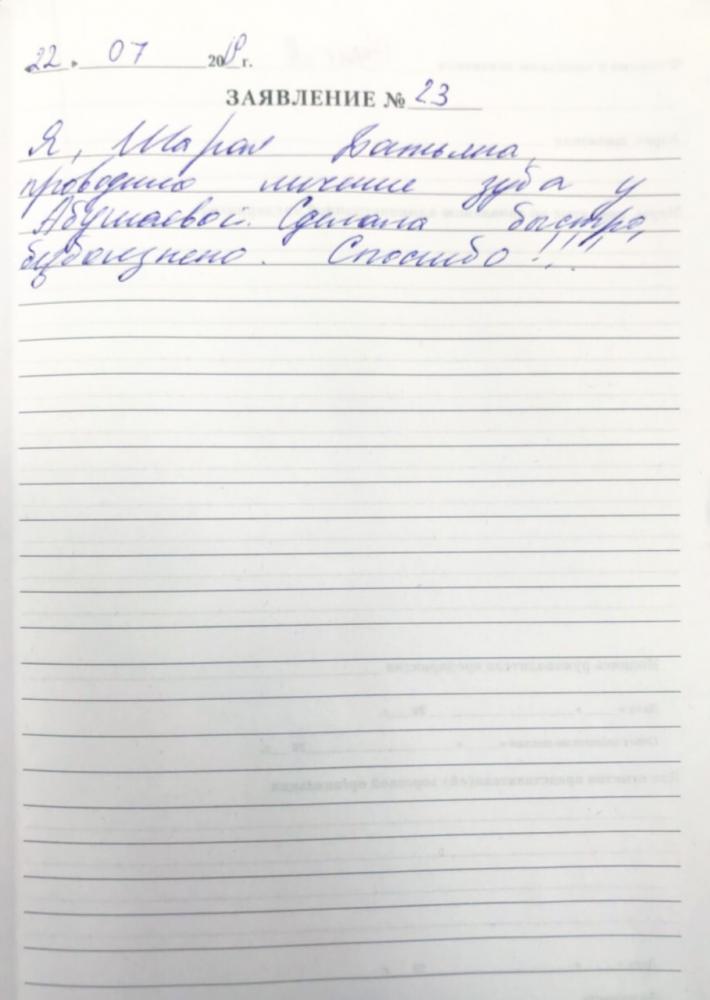 22 » 07 2019 г.
ЗАЯВЛЕНИЕ № 23
Я, Шарая Татьяна,
проводила личение зуба у
Абушаевой. Сделала быстро,
безболезнено. Спосибо!!!